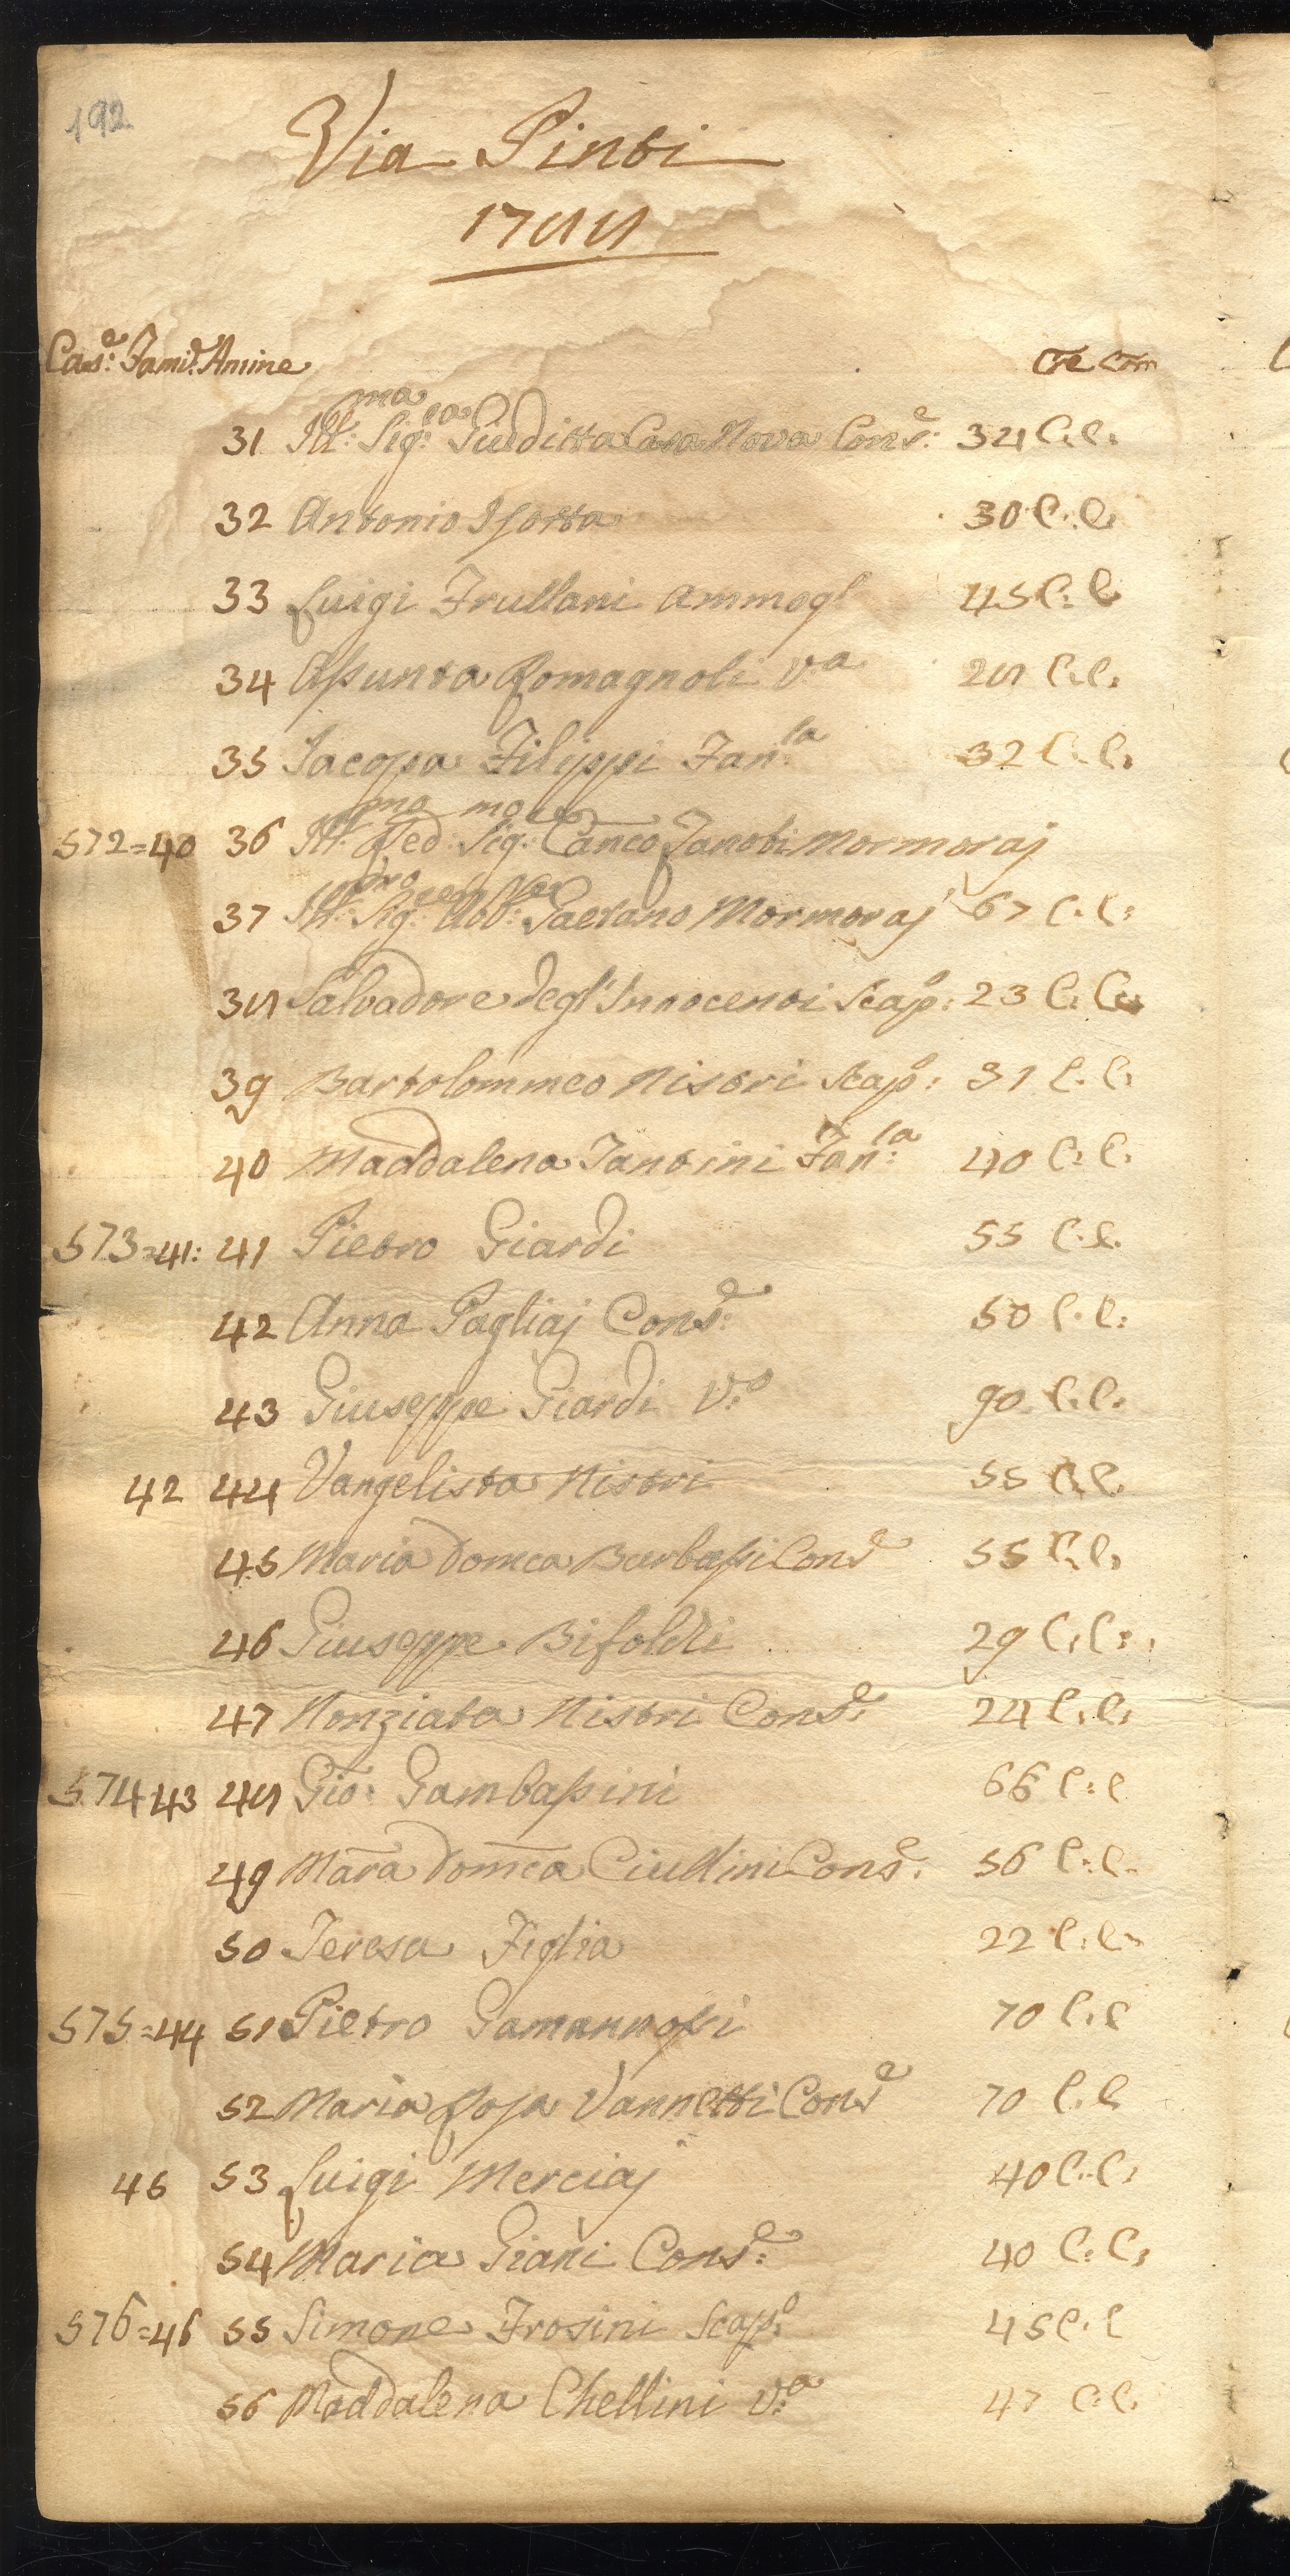 192
Via Pinti
1788
Cas.e Fami.e Anime Cre Com
31 Ill.ma Sig.ra Giuditta Casa Nova Cons.e: 34 C. C.
32 Antonio Isotta 30 C. C.
33 Luigi Frullani Ammogl 45 C: C
34 Assunta Romagnoli V.a 28 C. C.
35 Iacopa Filippi Fan.la 32 C. C.
572=40 36 Ill.mo Red.mo Sig.re Canco Zanobi Mormoraj
37 Ill. Sig. Abb. Gaetano Mormoraj 67 C. C:
38 Salvadore degl'Innocenti Scap.o: 23 C. C.
39 Bartolommeo Nistri Scap.o: 31 C. C.
40 Maddalena Fantini Fan.la 40 C. C.
573=41: 41 Pietro Giardi 55 C. C.
42 Anna Pagliaj Cons.e: 50 C. C:
43 Giuseppe Giardi V.o 90 C. C.
42 44 Vangelista Nistri 55 C. C.
45 Maria Domca Burbassi Cons.e 55 C. C.
46 Giuseppe Bifoldi 29 C. C.
47 Nonziata Nistri Cons.e: 24 C. C.
574 43 48 Gio: Gambassini 66 C: C
49 Mara Domca Ciullini Cons.e: 56 C. C.
50 Teresa Figlia 22 C. C.
575=44 51 Pietro Gamannossi 70 C. C
52 Maria Rosa Vannetti Cons.e 70 C. C
45 53 Luigi Merciaj 40 C. C.
54 Maria Giani Cons.e: 40 C: C.
576=46 55 Simone Frosini Scap.o 45 C. C
56 Maddalena Chellini V.a 47 C. C.